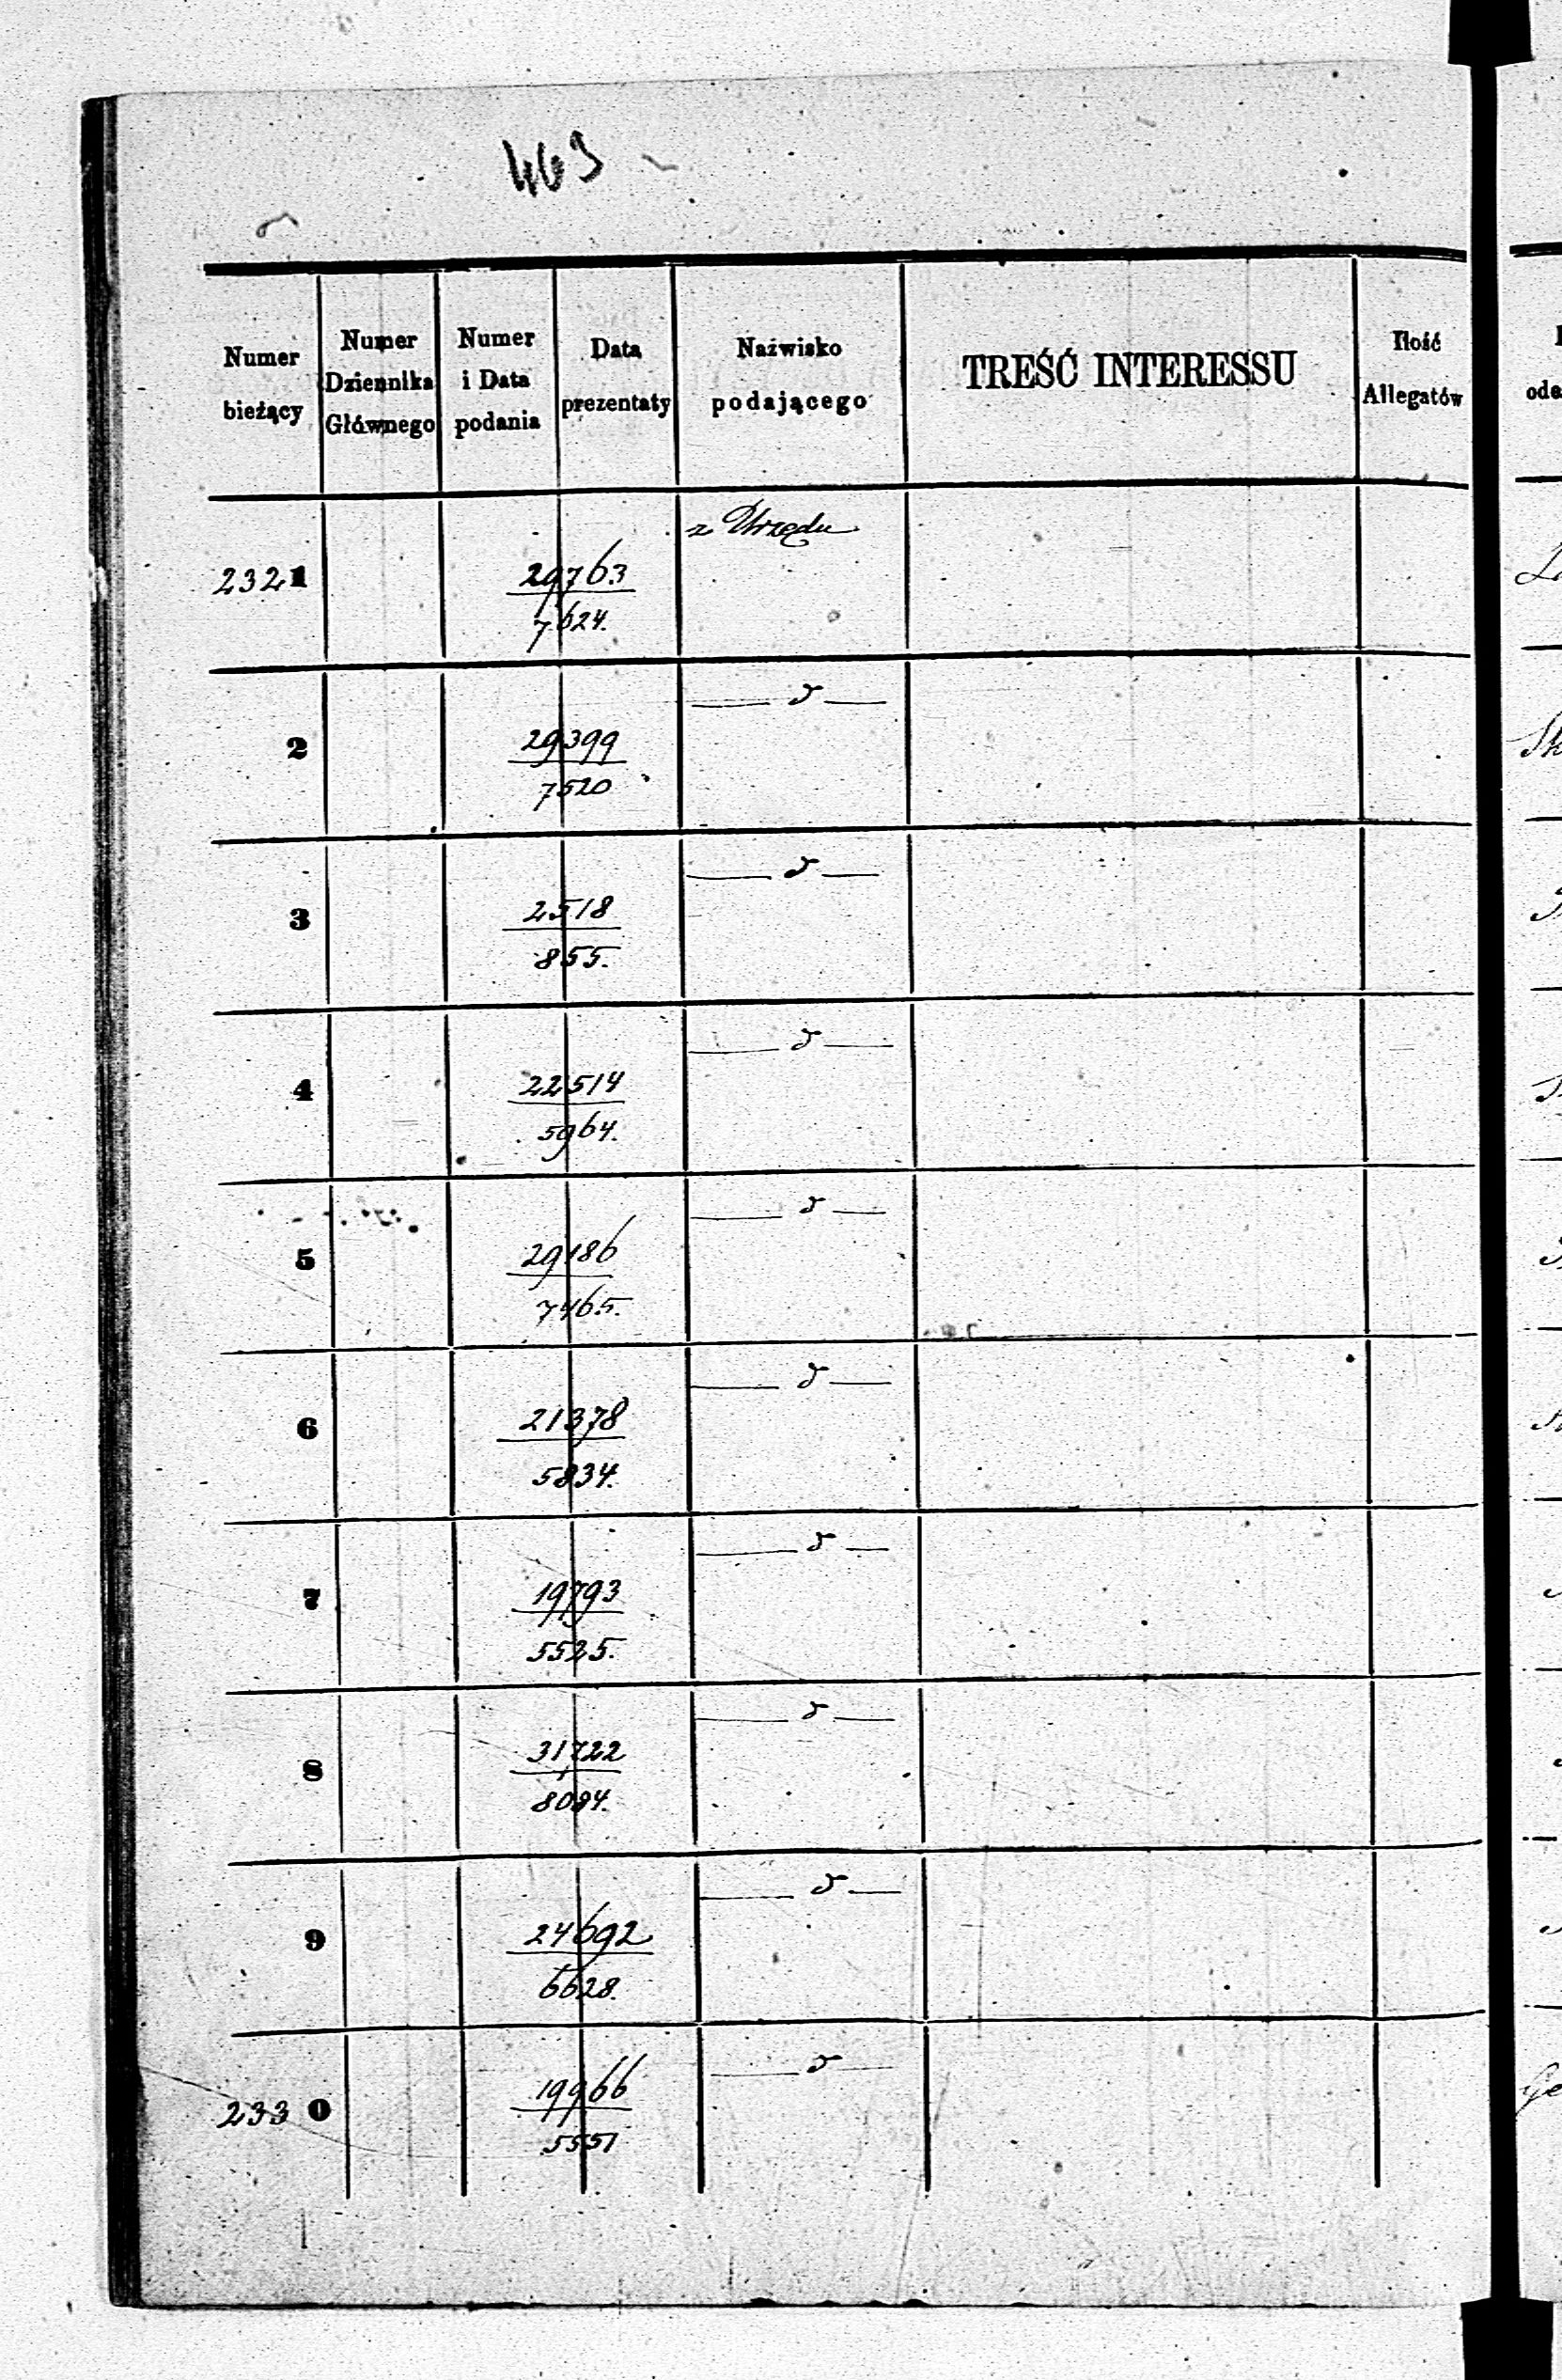 469
Numer bieżący
Numer Dziennika Głównego
Numer i Data podania
Data prezentaty
Nazwisko podającego
TREŚĆ INTERESSU
Ilość Allegatów
z Urzędu
2321
29763
7624.
d
2
29399
7520
d
3
2518
855.
d
4
22514
5964.
d
5
29186
7465.
d
6
21378
5834.
d
7
19793
5525.
d
8
31722
8084.
d
9
24692
6628.
d
2330
19966
5551